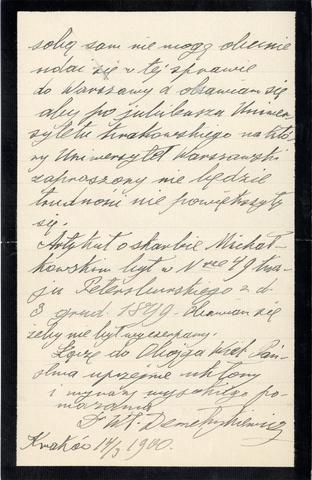 sobą sam nie mogę obecnie
udać się w tej sprawie
do Warszawy a obawiam się
aby po jubileuszu Uniwer
sytetu krakowskiego na któ
ry Uniwersytet Warszawski
zaproszony nie będzie
trudności nie powiększyły
się.
Artykuł o skarbie Michał
kowskim był w Nrze 49 Kra
ju Petersburskiego z d.
3 grud. 1899. Obawiam się
żeby nie był wyczerpany.
Łączę do Obojga Wiel. Pań
stwa uprzejme ukłony
i wyrazy wysokiego po
ważania
Dr Wł. Demetrykiewicz
Kraków 14/3 1900.